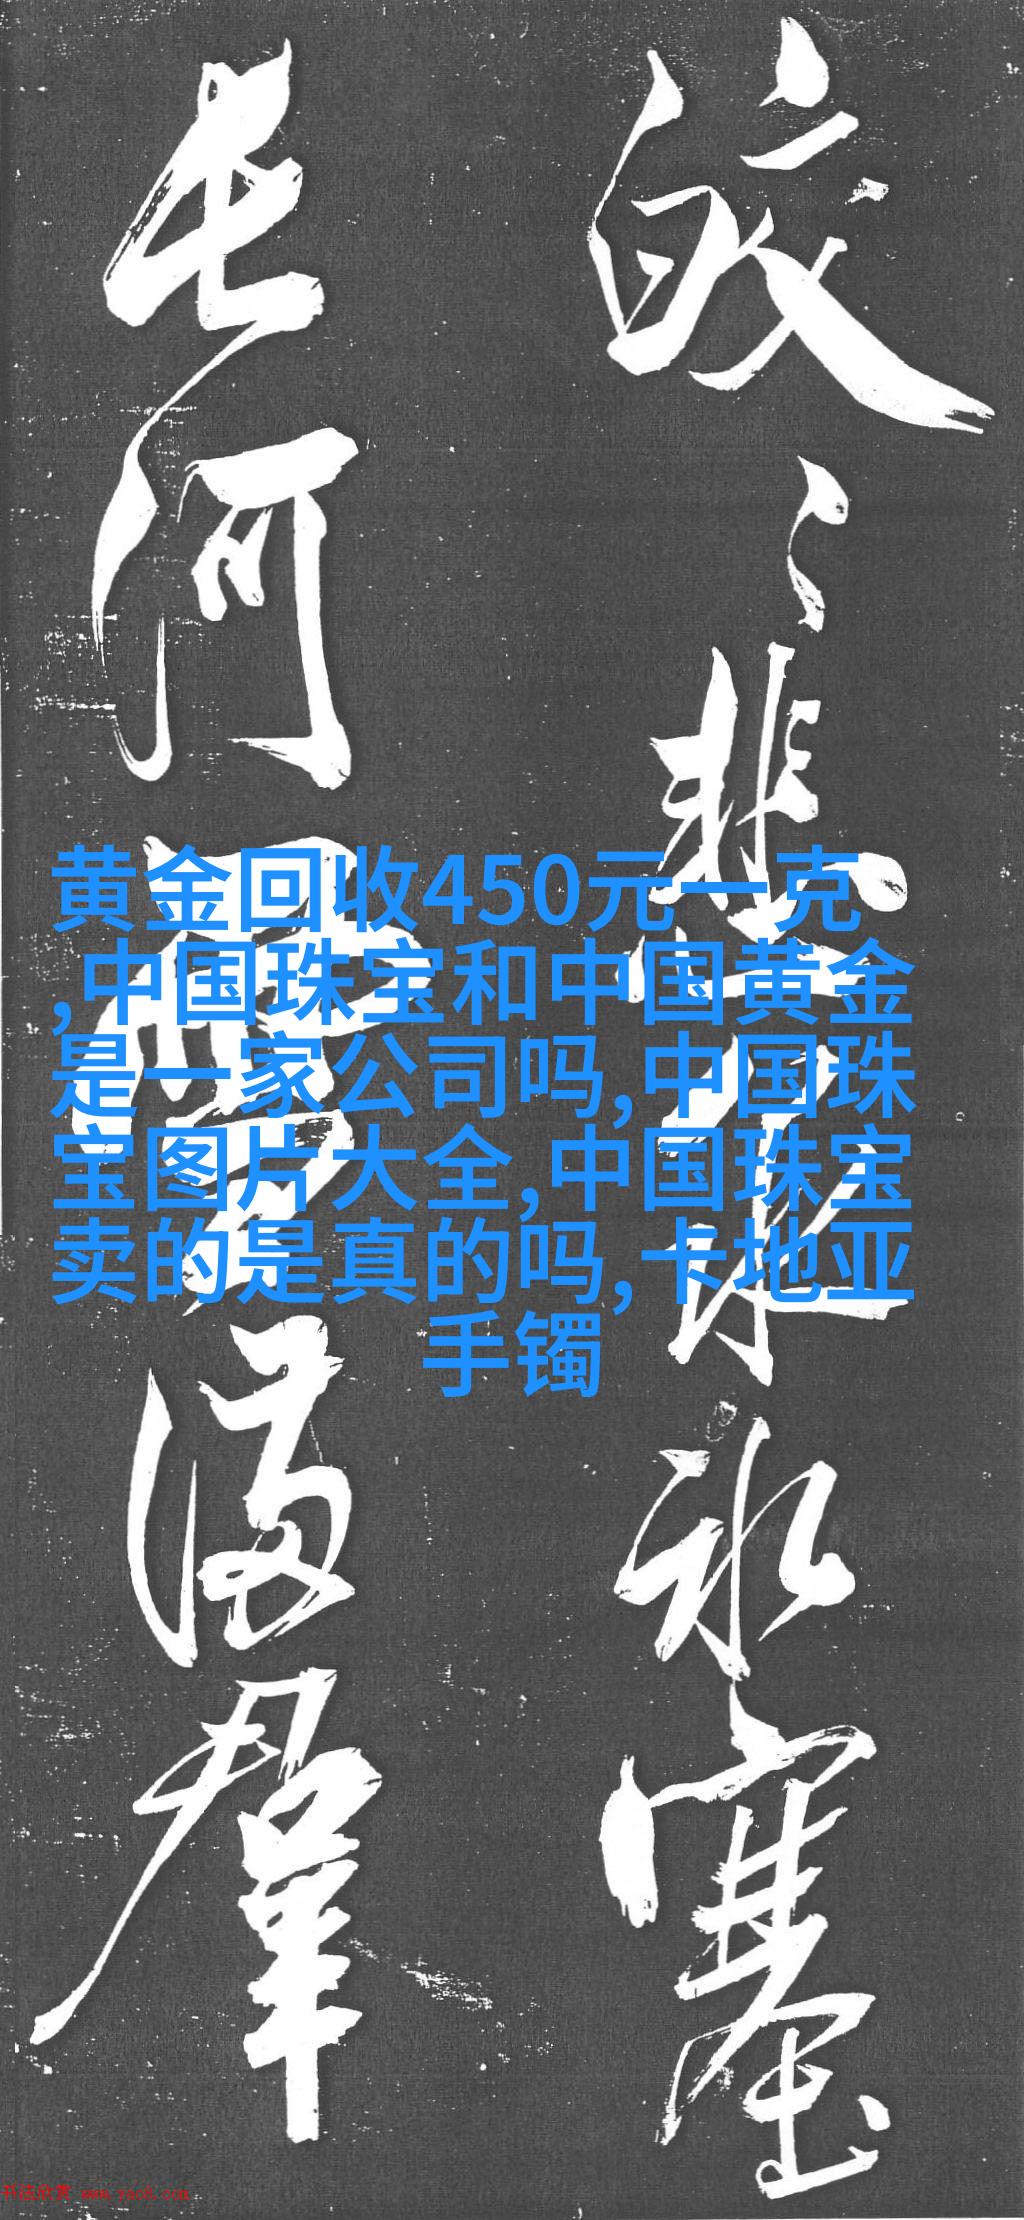 皎〻悲泉氷塞
長河雪滿羣
黄金回收450元一克
,中国珠宝和中国黄金
是一家公司吗,中国珠
宝图片大全,中国珠宝
卖的是真的吗,卡地亚
手镯
书法欣赏 www.yac8.com